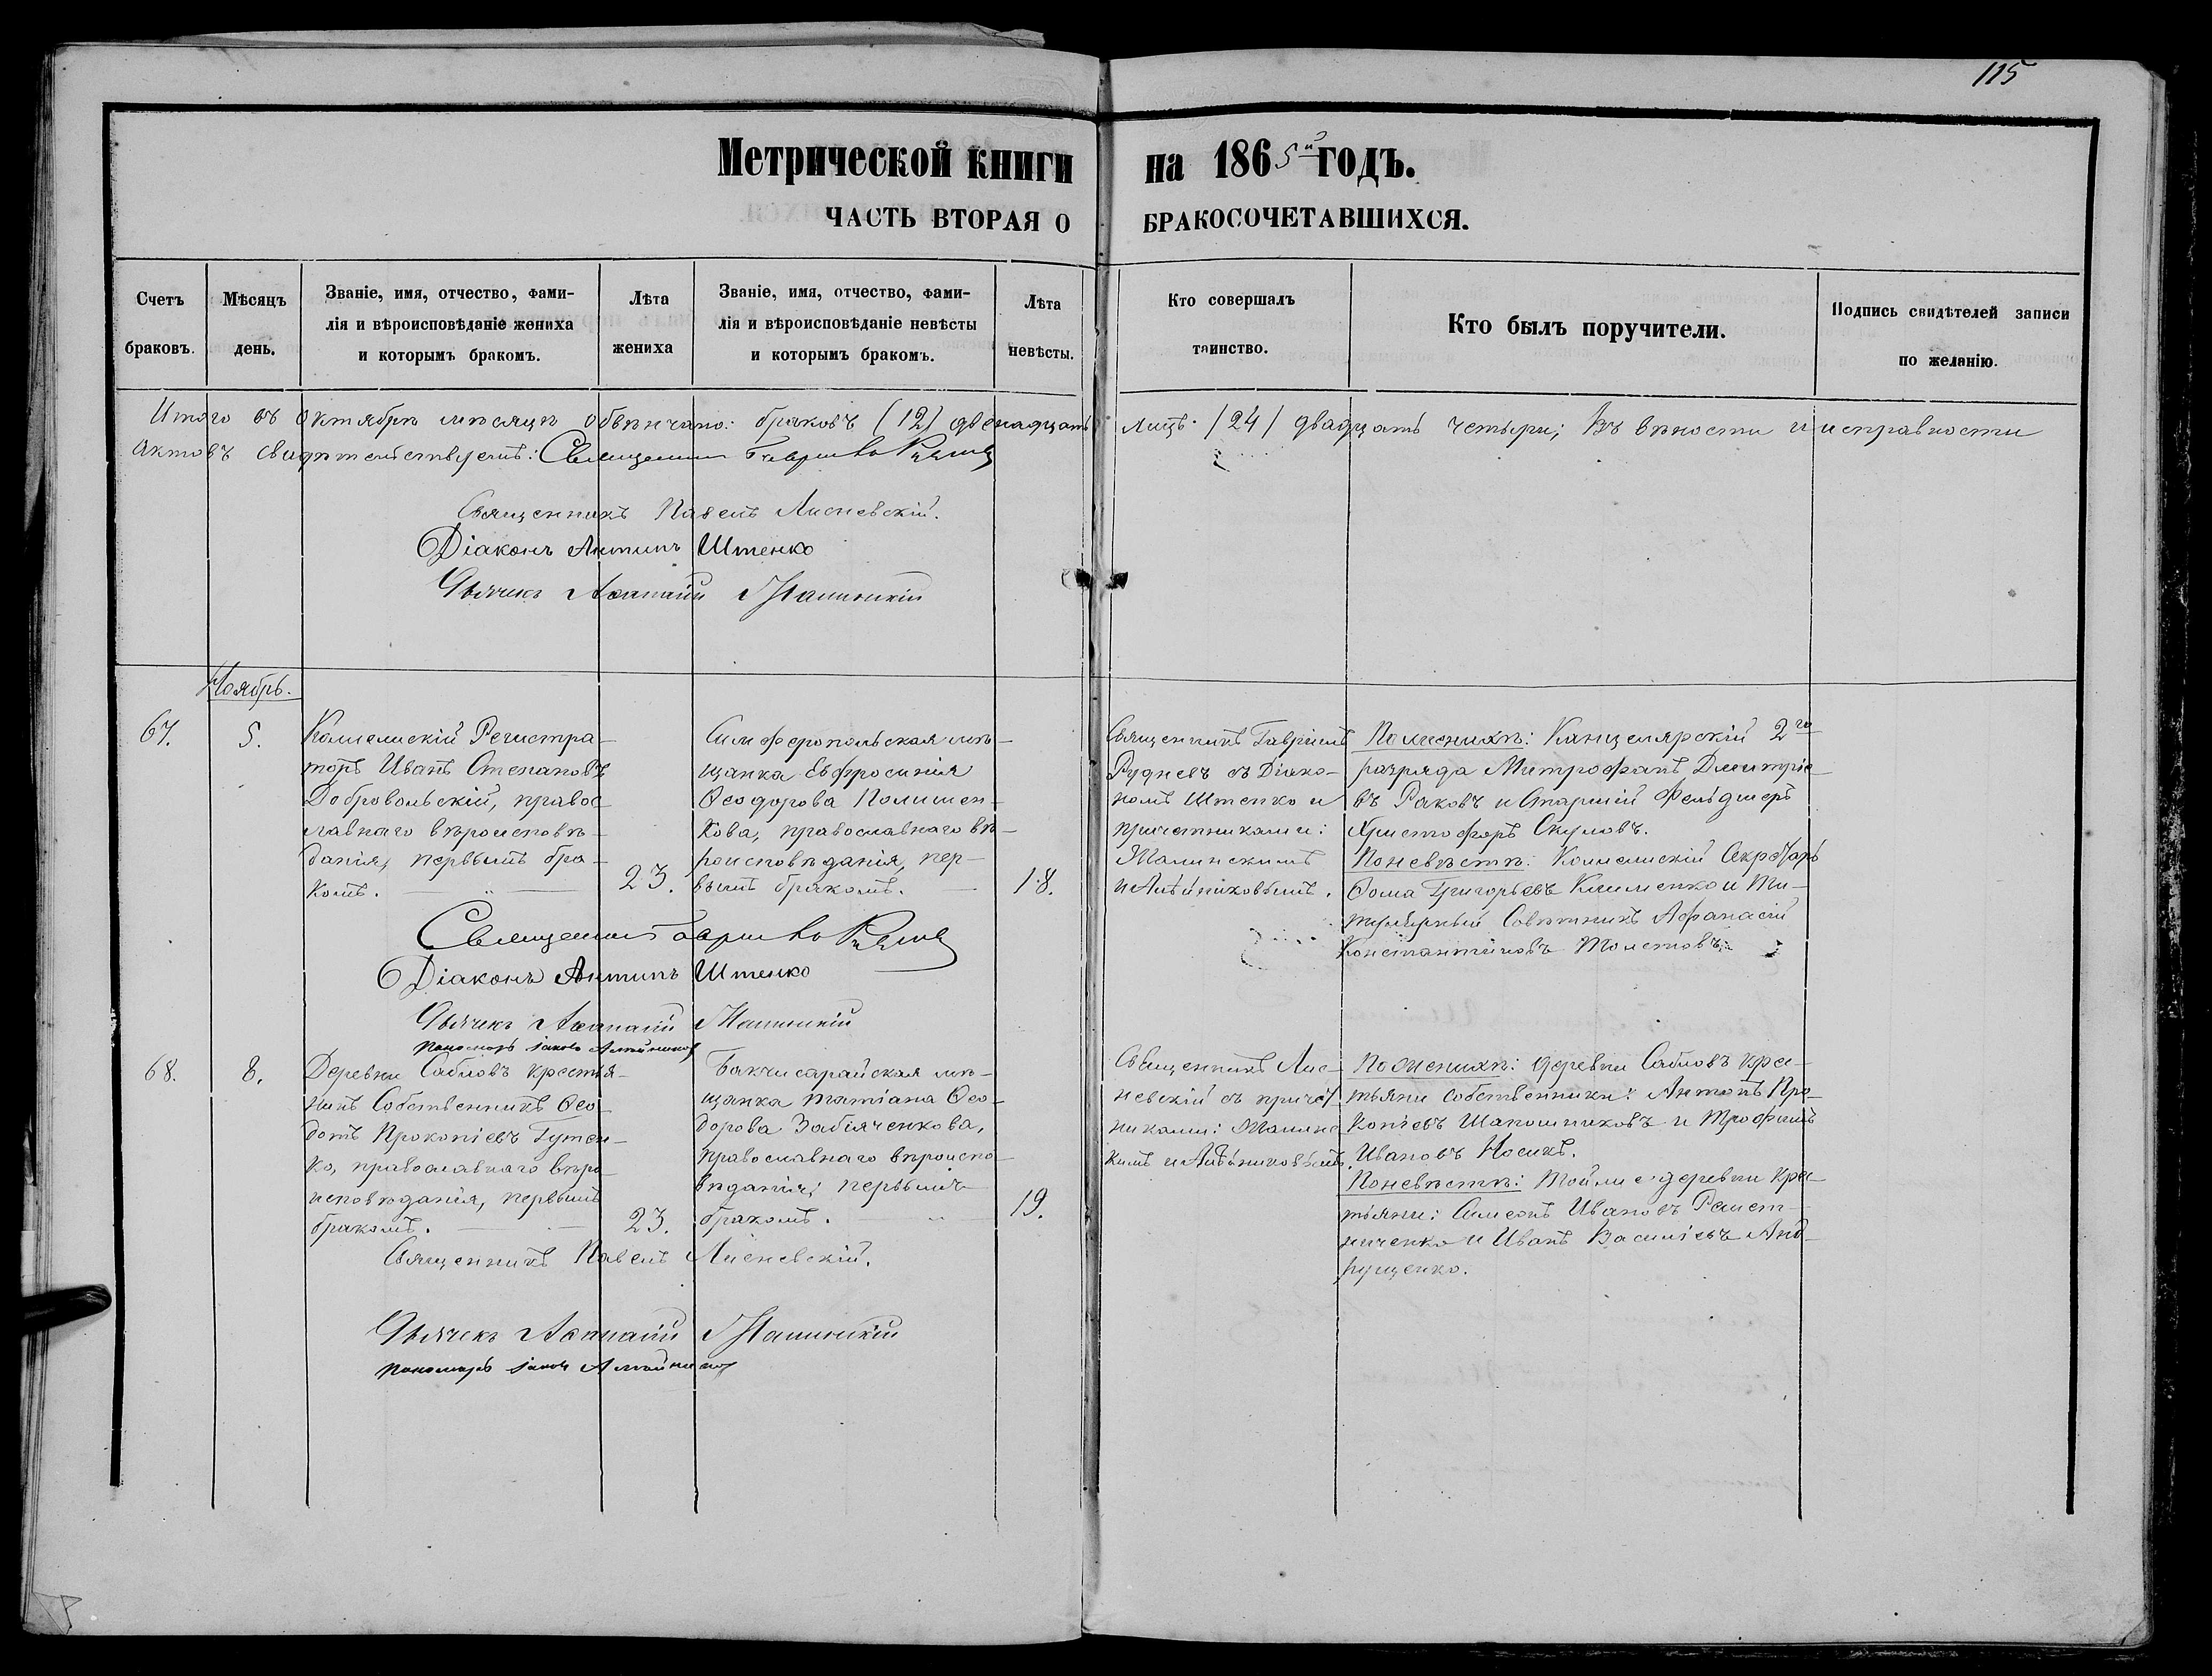 115
Метрической книги на 1865й годъ.
ЧАСТЬ ВТОРАЯ О БРАКОСОЧЕТАВШИХСЯ.
Счетъ браковъ.
Мѣсяцъ день.
Званіе, имя, отчество, фами-
лія и вѣроисповѣданіе жениха
и которымъ бракомъ.
Лѣта жениха
Званіе, имя, отчество, фами-
лія и вѣроисповѣданіе невѣсты
и которымъ бракомъ.
Лѣта невѣсты.
Кто совершалъ таинство.
Кто былъ поручители.
Подпись свидѣтелей записи
по желанію.
Итого въ Октябрѣ мѣсяцѣ обвѣнчано: браковъ (12) двенадцать лицъ. (24) двадцать четыри; Въ вѣности и исправности
актовъ свидѣтельствуемъ: Священникъ Гавріилъ Рудневъ
Священникъ Павелъ Лисневскій.
Діаконъ Антипъ Штенко
Дьячекъ Малинскій
Ноябрь.
67.
5.
Коллежскій Регистра-
торъ Иванъ Степановъ
Добровольскій, правос
лавнаго вѣроисповѣ-
данія, первымъ бра-
комъ.
23.
Симферопольская мѣ-
щанка Евфросинія
Ѳеодорова Полишен-
кова, православнаго вѣ-
роисповѣданія, пер-
вымъ бракомъ.
18.
Священникъ Гавріилъ
Рудневъ съ Діако-
номъ Штенко и
причетниками:
Малинскимъ
и Алѣйниковымъ.
По женихѣ: Канцелярскій 2го
разряда Митрофанъ Дмитріе-
въ Раковъ и Старшій Фельдшеръ
Христофоръ Окуловъ.
По невѣстѣ: Коллежскій Секретарь
Ѳома Григорьевъ Клименко и Ти-
тулярный Совѣтникъ Афанасій
Константиновъ Толстовъ.
Священникъ Гавріилъ Рудневъ
Діаконъ Антипъ Штенко
Дьячекъ Малинскій
Пономарь Іаковъ Алейниковъ
68.
8.
Деревни Сабловъ крестья-
нинъ Собственникъ Ѳео-
дотъ Прокопіевъ Гутен-
ко, православнаго вѣро-
исповѣданія, первымъ
бракомъ.
23.
Бакчисарайская мѣ-
щанка Татіана Ѳео-
дорова Забіяченкова,
православнаго вѣроиспо-
вѣданія, первымъ
бракомъ.
19.
Священникъ Лис-
невскій съ причет
никами: Малинс
кимъ и Алѣйниковымъ.
По женихѣ: деревни Сабловъ кре-
стьяни собственники: Антонъ Про-
копіевъ Шапошниковъ и Трофимъ
Ивановъ Носикъ.
По невѣстѣ: Той же деревни кре-
стьяни: Симеонъ Ивановъ
и Иванъ Василіевъ Анд-
рущенко.
Священникъ Павелъ Лисневскій.
Дьячекъ Малинскій
Пономарь Іаковъ Алейниковъ